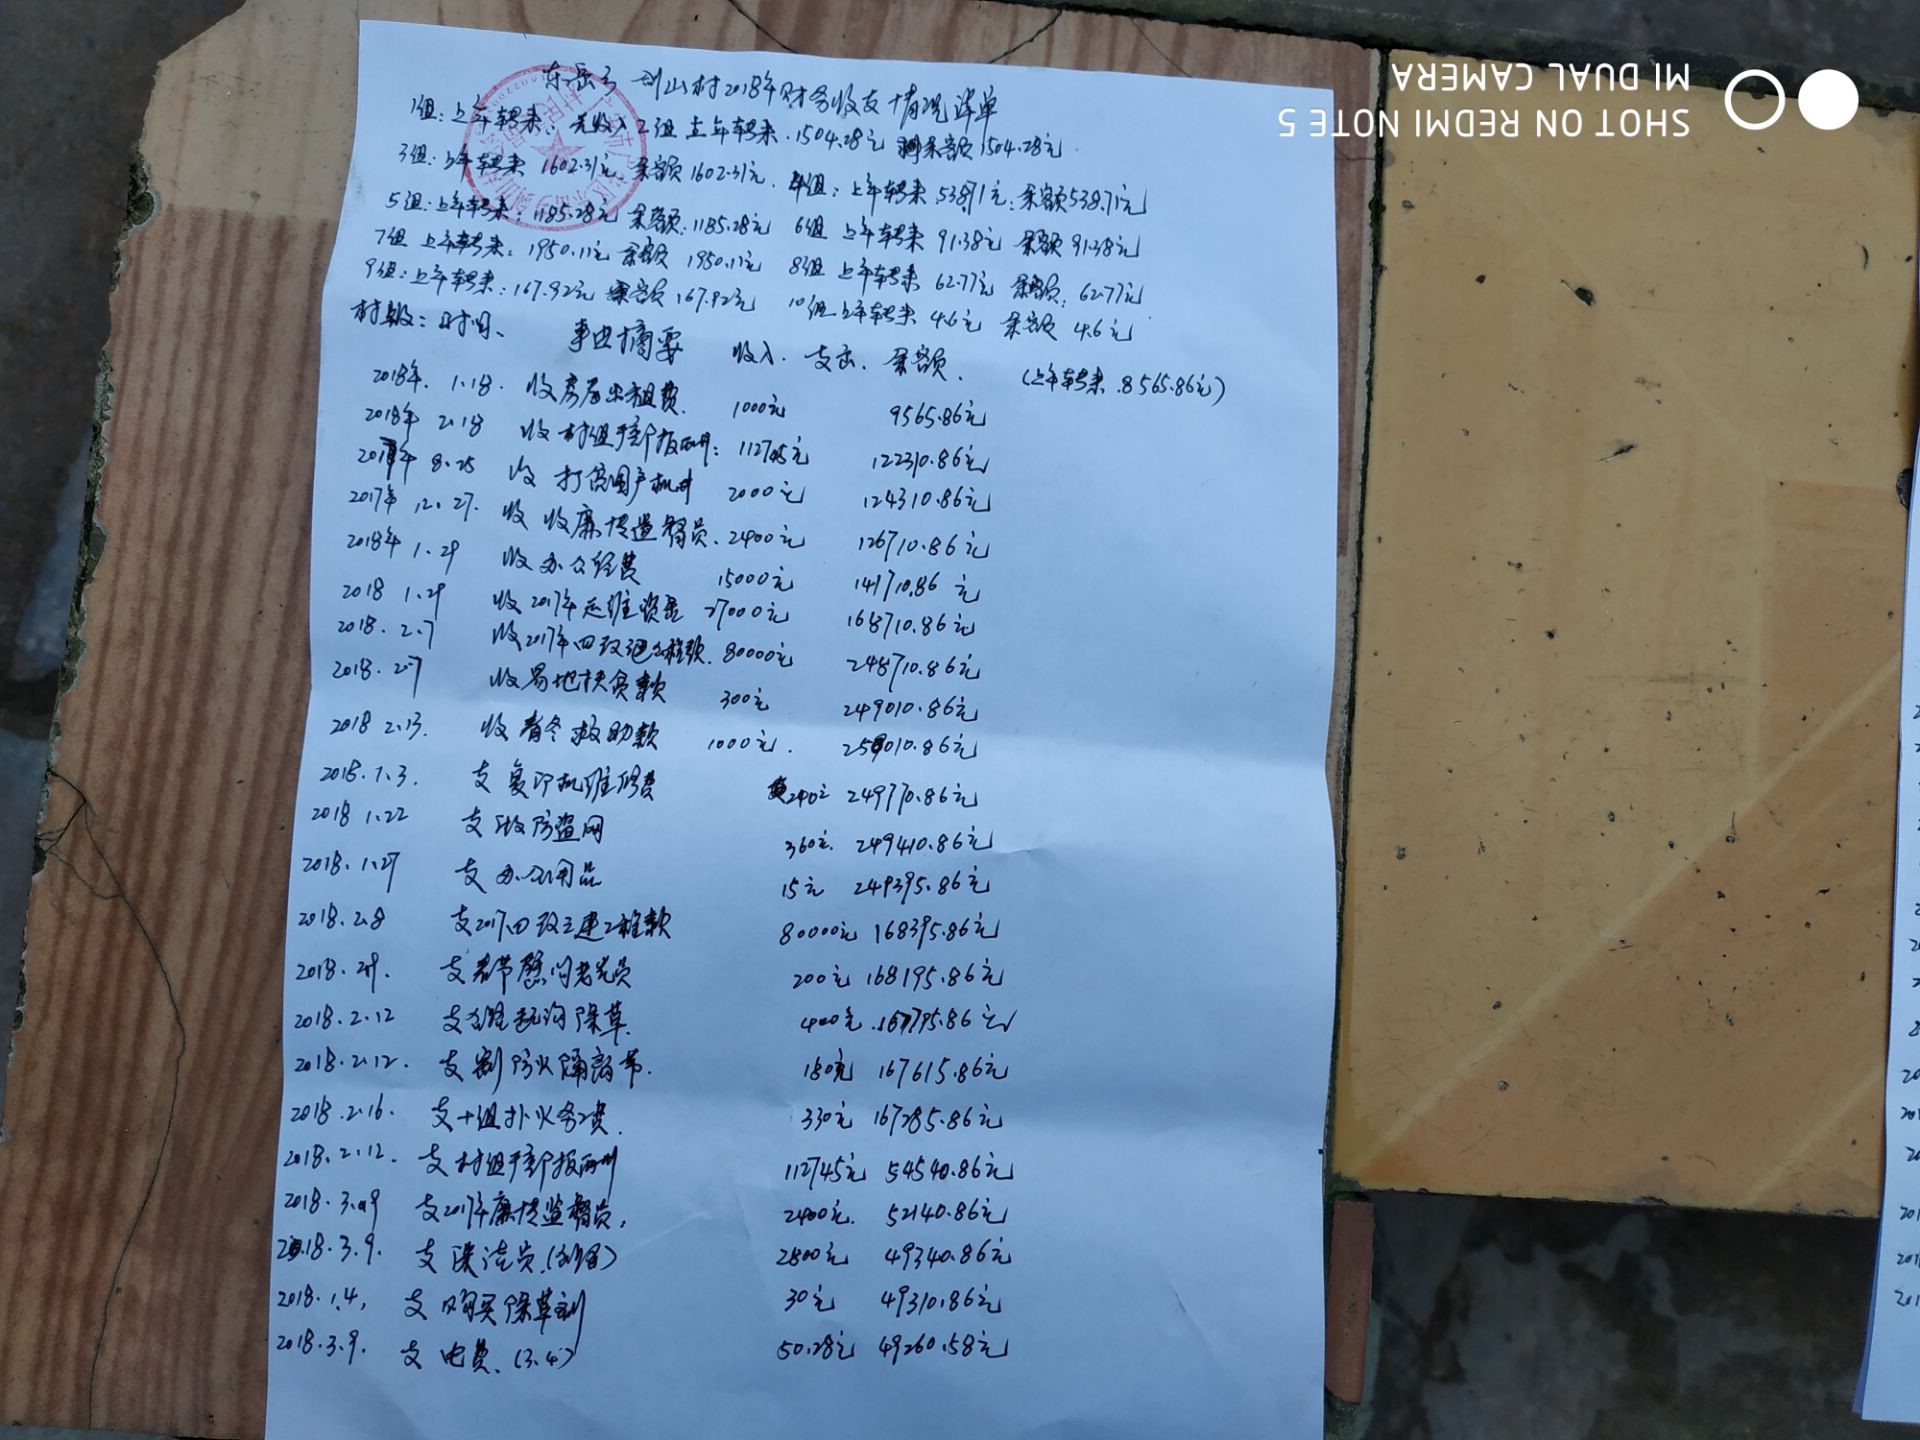 东岳乡 剑山村2018年财务收支情况详单
1组:上年转来:无收入 2组 上年转来.1504.28元 余额1504.28元
3组:上年转来 1602.31元.余额1602.31元. 4组:上年转来 538.71元.余额538.71元
5组:上年转来:1185.28元 余额:1185.28元 6组 上年转来 91.38元 余额91.38元
7组 上年转来:1950.11元 余额 1950.11元 8组 上年转来 62.77元 余额:62.77元
9组:上年转来:167.92元 余额167.92元 10组上年转来 4.6元 余额 4.6元
村级:时间、 事由摘要 收入.支出、余额. (上年转来.8565.86元)
2018年.1.18. 收房屋出租费. 1000元 9565.86元
2018年 2.18 收村组干部报酬:112745元 122310.86元
2017年 8.25 收 2000元 124310.86元
2017年 12.27. 收 收廉情监督员.2400元 126710.86元
2018年 1.29 收办公经费 15000元 141710.86元
2018 1.29 收2017年运维资金 27000元 168710.86元
2018.2.7 收2017年四改 工程款.80000元 248710.86元
2018.2.7 收易地扶贫款 300元 249010.86元
2018 2.13. 收春冬救助款 1000元. 250010.86元
2018.1.3. 支 复印机维修费 240元 249770.86元
2018 1.22 支 防盗网 360元. 249410.86元
2018.1.27 支办公用品 15元 249395.86元
2018.2.8 支2017四改三建工程款 80000元 168395.86元
2018.2.9. 支春节慰问老党员 200元 168195.86元
2018.2.12 支 除草. 400元.167795.86元
2018.2.12. 支割防火隔离带. 180元 167615.86元
2018.2.16. 支十组扑火务工费. 330元 167285.86元
2018.2.12. 支村组干部报酬 112745元 54540.86元
2018.3.9 支2017年廉情监督员, 2400元. 52140.86元
2018.3.9. 支保洁员 2800元 49340.86元
2018.1.4, 支购买除草剂 30元 49310.86元
2018.3.9. 支电费.(3.4) 50.28元 49260.58元
SHOT ON REDMI NOTE 5
MI DUAL CAMERA